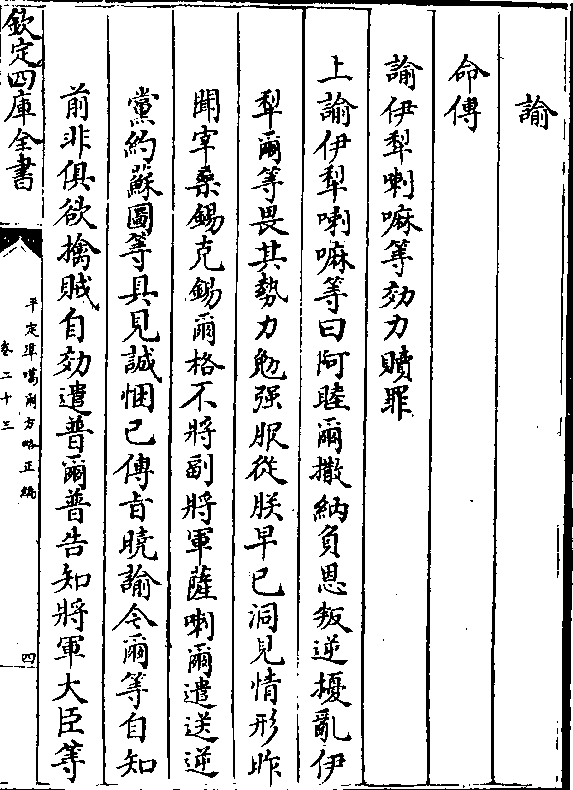 諭
命傳
諭伊犁喇嘛等効力贖罪
上諭伊犁喇嘛等曰阿睦爾撒納負恩叛逆擾亂伊
犁爾等畏其勢力勉强服從朕早已洞見情形昨
聞宰桑錫克錫爾格不將副將軍薩喇爾遣送逆
黨約蘇圖等具見誠悃已傳旨曉諭令爾等自知
前非俱欲擒賊自効遣普爾普告知將軍大臣等
欽定四庫全書
平定準噶爾方略正編
卷二十三
四